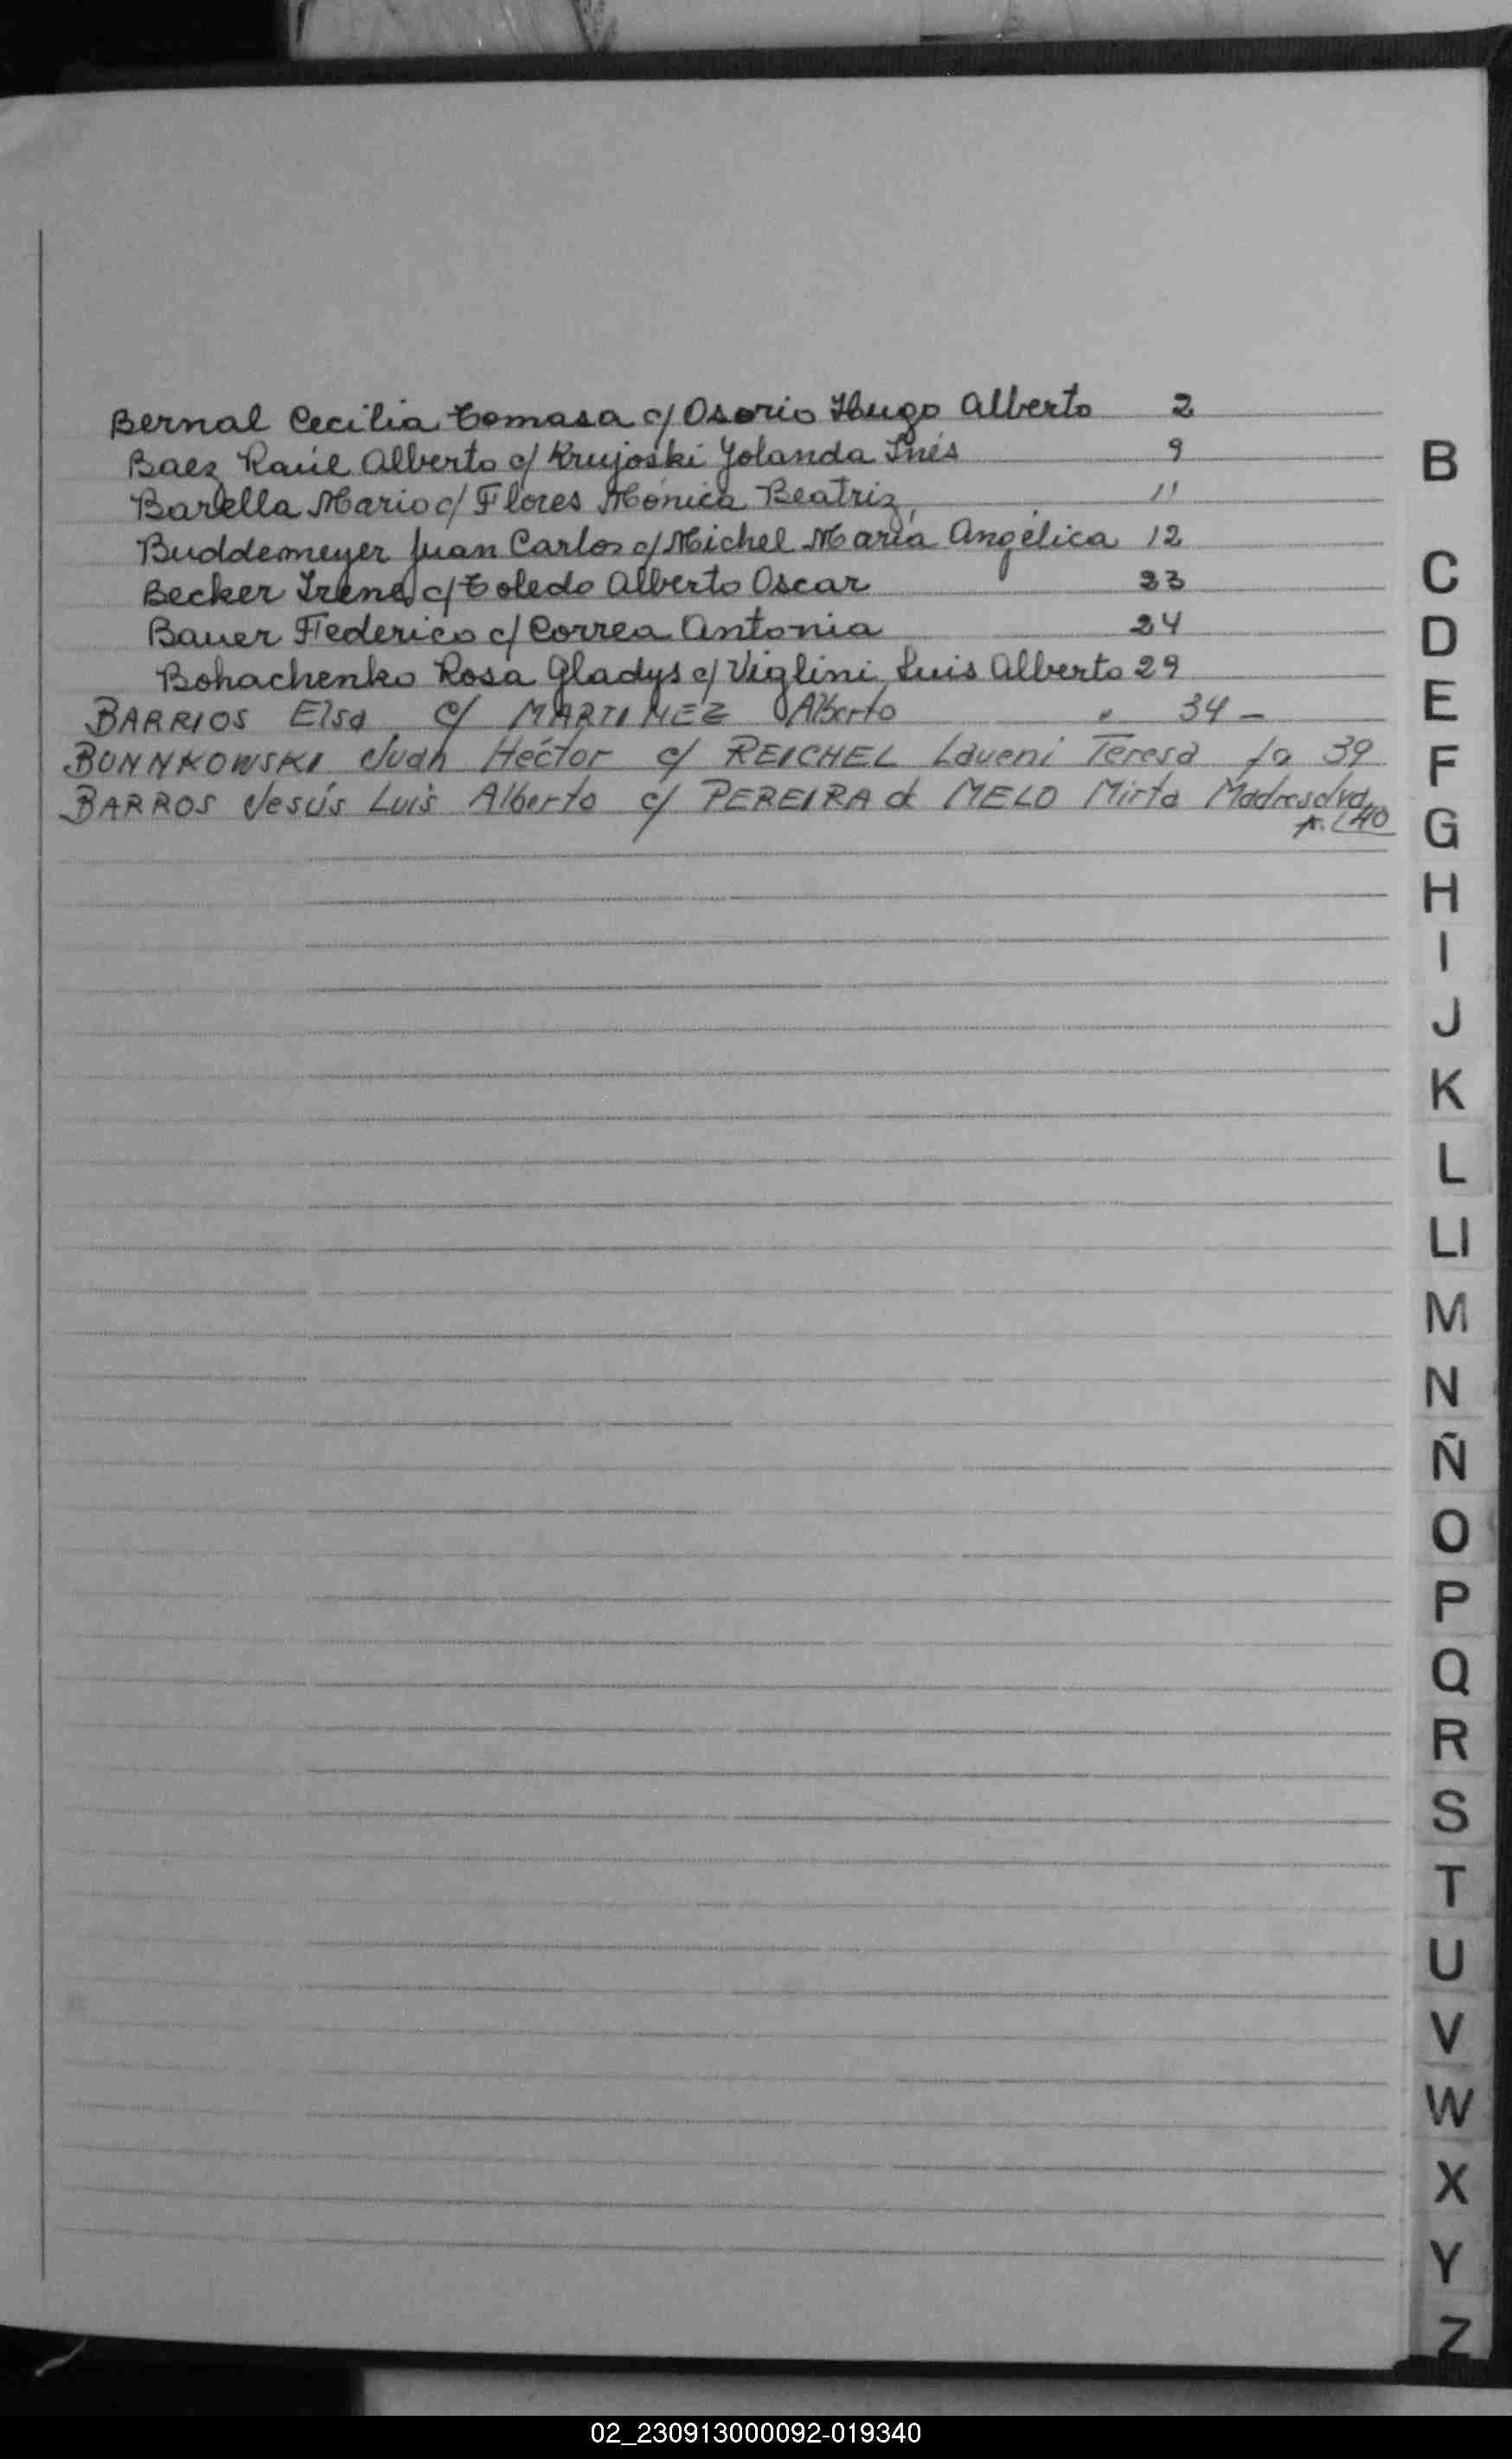 Bernal Cecilia Tomasa c/ Osorio Hugo Alberto 2
Baez Raúl Alberto c/ Krujoski Yolanda Inés 9
Barella Mario c/ Flores Mónica Beatriz 11
Buddemeyer Juan Carlos c/ Michel María Angélica 12
Becker Irene c/ Toledo Alberto Oscar 23
Bauer Federico c/ Correa Antonia 24
Bohachenko Rosa Gladys c/ Viglini Luis Alberto 29
BARRIOS Elsa c/ MARTINEZ Alberto " 34 -
BONNKOWSKI Juan Héctor c/ REICHEL Laveni Teresa fo 39
BARROS Jesús Luis Alberto c/ PEREIRA d MELO Mirta Madresalva
40
B
C
D
E
F
G
H
I
J
K
L
Ll
M
N
Ñ
O
P
Q
R
S
T
U
V
W
X
Y
Z
02_230913000092-019340